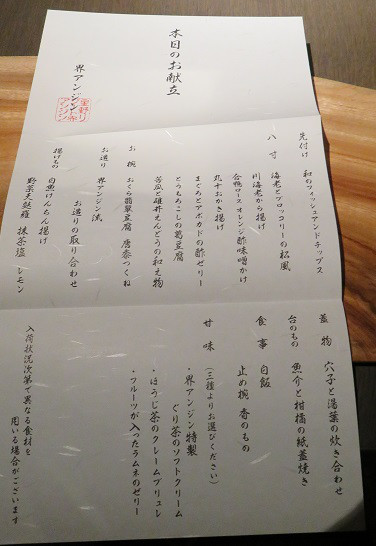 本日のお献立
界アンジン
先付け 和のフィッシュアンドチップス
八寸 海老とブロッコリーの松風
川海老から揚げ
合鴨ロースオレンジ酢味噌かけ
丸十おかき揚げ
まぐろとアボカドの酢ゼリー
とうもろこしの葛豆腐
苦瓜と碓井えんどうの和え物
お椀 おくら翡翠豆腐 唐黍つくね
お造り 界アンジン流
お造りの取り合わせ
揚げもの 白魚けんちん揚げ
野菜天麩羅 抹茶塩 レモン
蓋物 穴子と湯葉の炊き合わせ
台のもの 魚介と柑橘の紙蓋焼き
食事 白飯
止め椀 香のもの
甘味 (三種よりお選びください)
・界アンジン特製
ぐり茶のソフトクリーム
・ほうじ茶のクレームブリュレ
・フルーツが入ったラムネのゼリー
入荷状況次第で異なる食材を
用いる場合がございます